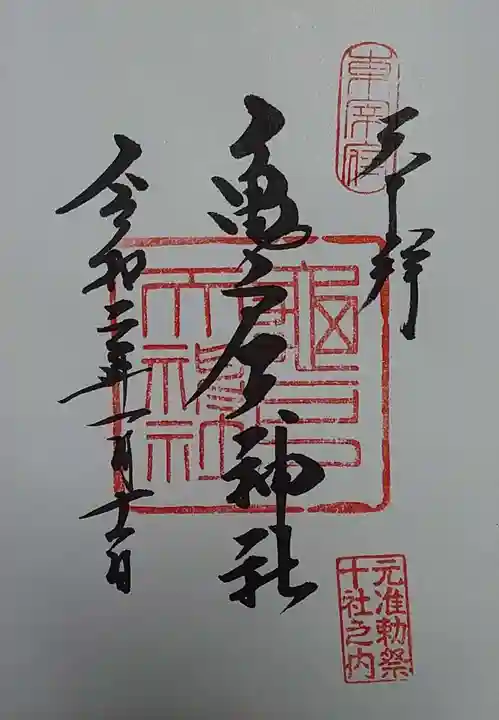 東宰府
奉拝
亀戸天神社
令和二年一月十一日
龜戸
天神社
元准勅祭
十社之内